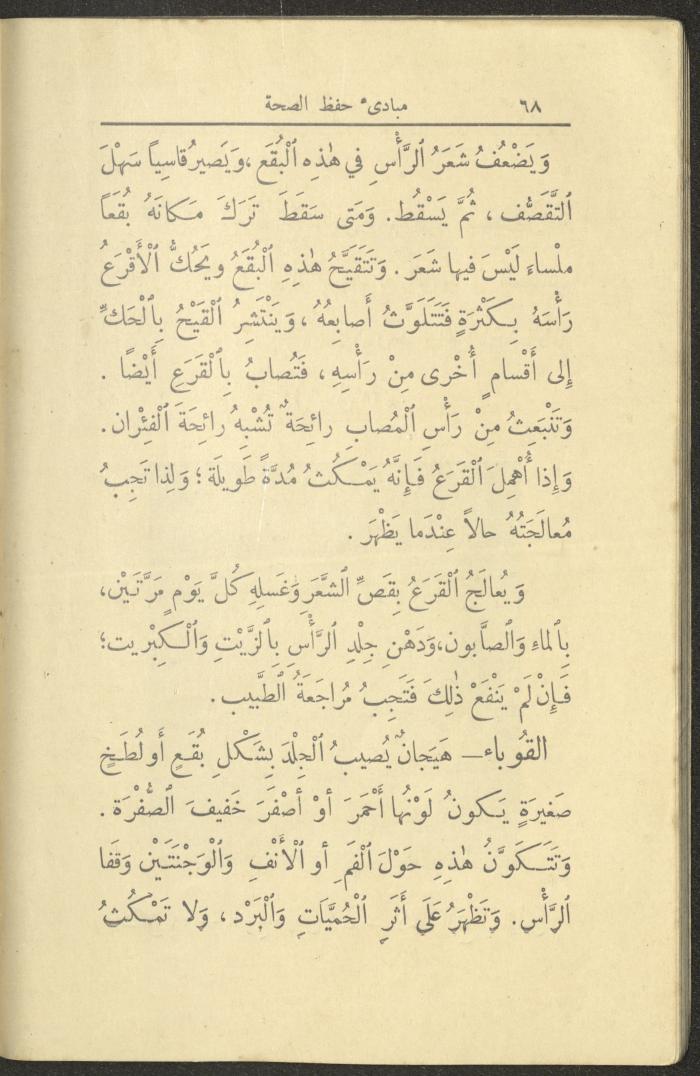 ٦٨ مبادىء حفظ الصحة
وَيَضْعُفُ شَعَرُ ٱلرَّأْسِ في هٰذِهِ ٱلْبُقَع، وَيَصيرُ قاسِياً سَهْلَ
ٱلتَّقَصُّف، ثُمَّ يَسْقُط. وَمَتى سَقَطَ تَرَكَ مَكانَهُ بُقَعاً
ملْساءَ لَيْسَ فيها شَعَر. وَتَتَقَيَّحُ هٰذِهِ ٱلْبُقَعُ ويَحُكُّ ٱلْأَقْرَعُ
رَأْسَهُ بِكَثْرَةٍ فَتَتَلَوَّثُ أَصابِعُهُ، وَيَنْتَشِرُ ٱلْقَيْحُ بِٱلْحَكِّ
إِلى أَقْسامٍ أُخْرى مِنْ رَأْسِهِ، فَتُصابُ بِٱلْقَرَعِ أَيْضًا.
وَتَنْبَعِثُ مِنْ رَأْسِ ٱلْمُصابِ رائِحَةٌ تُشْبِهُ رائِحَةَ ٱلْفِئْران.
وَإِذا أُهْمِلَ ٱلْقَرَعُ فَإِنَّهُ يَمْكُثُ مُدَّةً طَويلَة؛ وَلِذا تَجِبُ
مُعالَجَتُهُ حالاً عِنْدَما يَظْهَر.
وَيُعالَجُ ٱلْقَرَعُ بِقَصِّ ٱلشَّعَرِ وَغَسلِهِ كُلَّ يَوْمٍ مَرَّتَيْن،
بِٱلماءِ وَٱلصّابون، وَدَهْنِ جِلْدِ ٱلرَّأْسِ بِٱلزَّيْتِ وَٱلْكِبْريت؛
فَإِنْ لَمْ يَنْفَعْ ذٰلِكَ فَتَجِبُ مُراجَعَةُ ٱلطَّبيب.
القُوباء — هَيَجانٌ يُصيبُ ٱلْجِلْدَ بِشَكْلِ بُقَعٍ أَو لُطَخٍ
صَغيرَةٍ يَكونُ لَوْنُها أَحْمَرَ أَوْ أَصْفَرَ خَفيفَ ٱلصُّفْرَة.
وَتَتَكَوَّنُ هٰذِهِ حَوْلَ ٱلْفَمِ أَو ٱلْأَنْفِ وَٱلْوَجْنَتَيْن وَقَفا
ٱلرَّأْس. وَتَظْهَرُ عَلَى أَثَرِ ٱلْحُمَّيَاتِ وَٱلْبَرْد، وَلا تَمْكُثُ